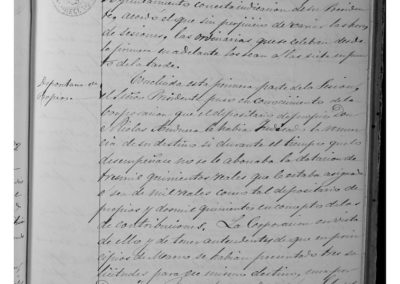 Ayuntamiento con esta indicacion de su Presiden-
te, acordó el que sin perjuicio de variar las horas
de sesiones, las ordinarias que se celebren desde
la primera en adelante los sean a las siete en pun-
to de la tarde.
Depositario de
Propios.
Concluida esta primera parte de la Sesion,
el Señor Presidente puso en conocimiento de la
Corporacion que el depositario de propios Don
Nicolas le habia la renun-
cia de su destino si durante el tiempo que lo
desempeñase no se le abonaba la dotacion de
tres mil quinientos reales que le estaba asignada
o sea de mil reales como tal depositario de
propios y dos mil quinientos en concepto de las
de contribuciones. La Corporacion en vista
de ello y de tener antecedentes de que en prin-
cipios de se habian presentado tres so-
licitudes para ese mismo destino, una por